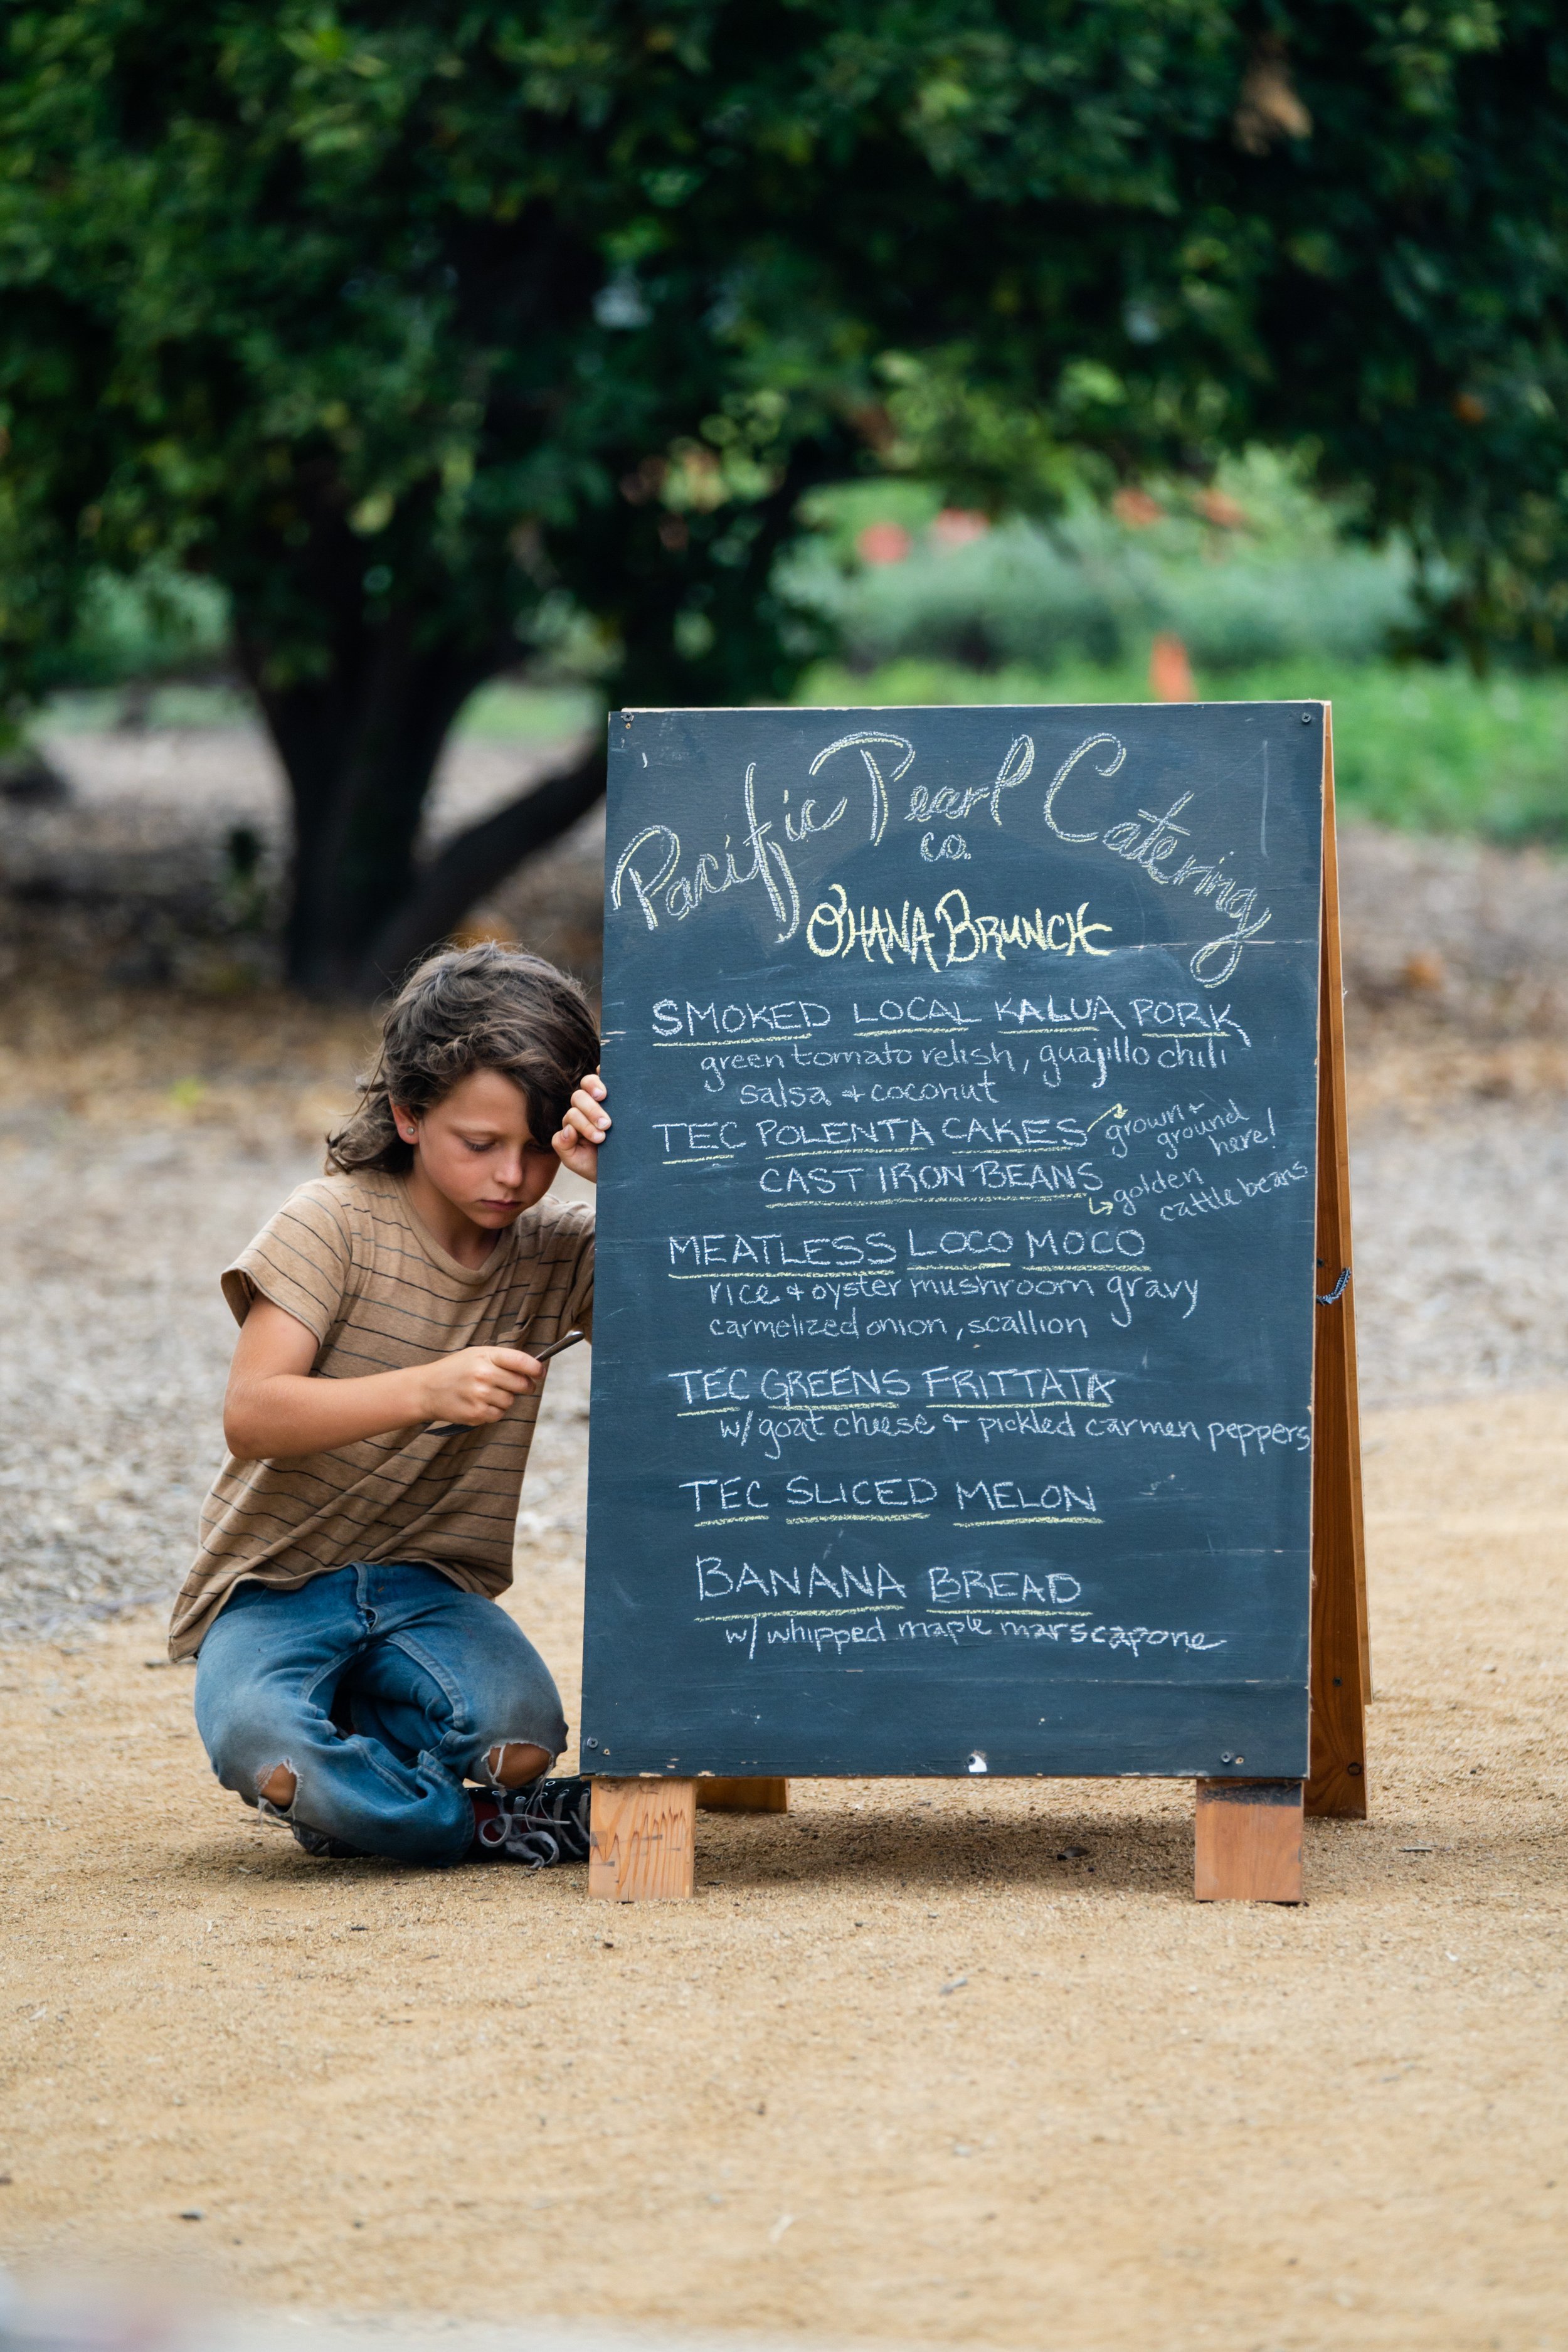 Pacific Pearl Catering
co.
OHANA BRUNCH
SMOKED LOCAL KALUA PORK
green tomato relish, guajillo chili
salsa + coconut
TEC POLENTA CAKES
grown +
ground
here!
CAST IRON BEANS
golden
cattle beans
MEATLESS LOCO MOCO
rice + oyster mushroom gravy
carmelized onion, scallion
TEC GREENS FRITTATA
w/ goat cheese + pickled carmen peppers
TEC SLICED MELON
BANANA BREAD
w/ whipped maple marscapone